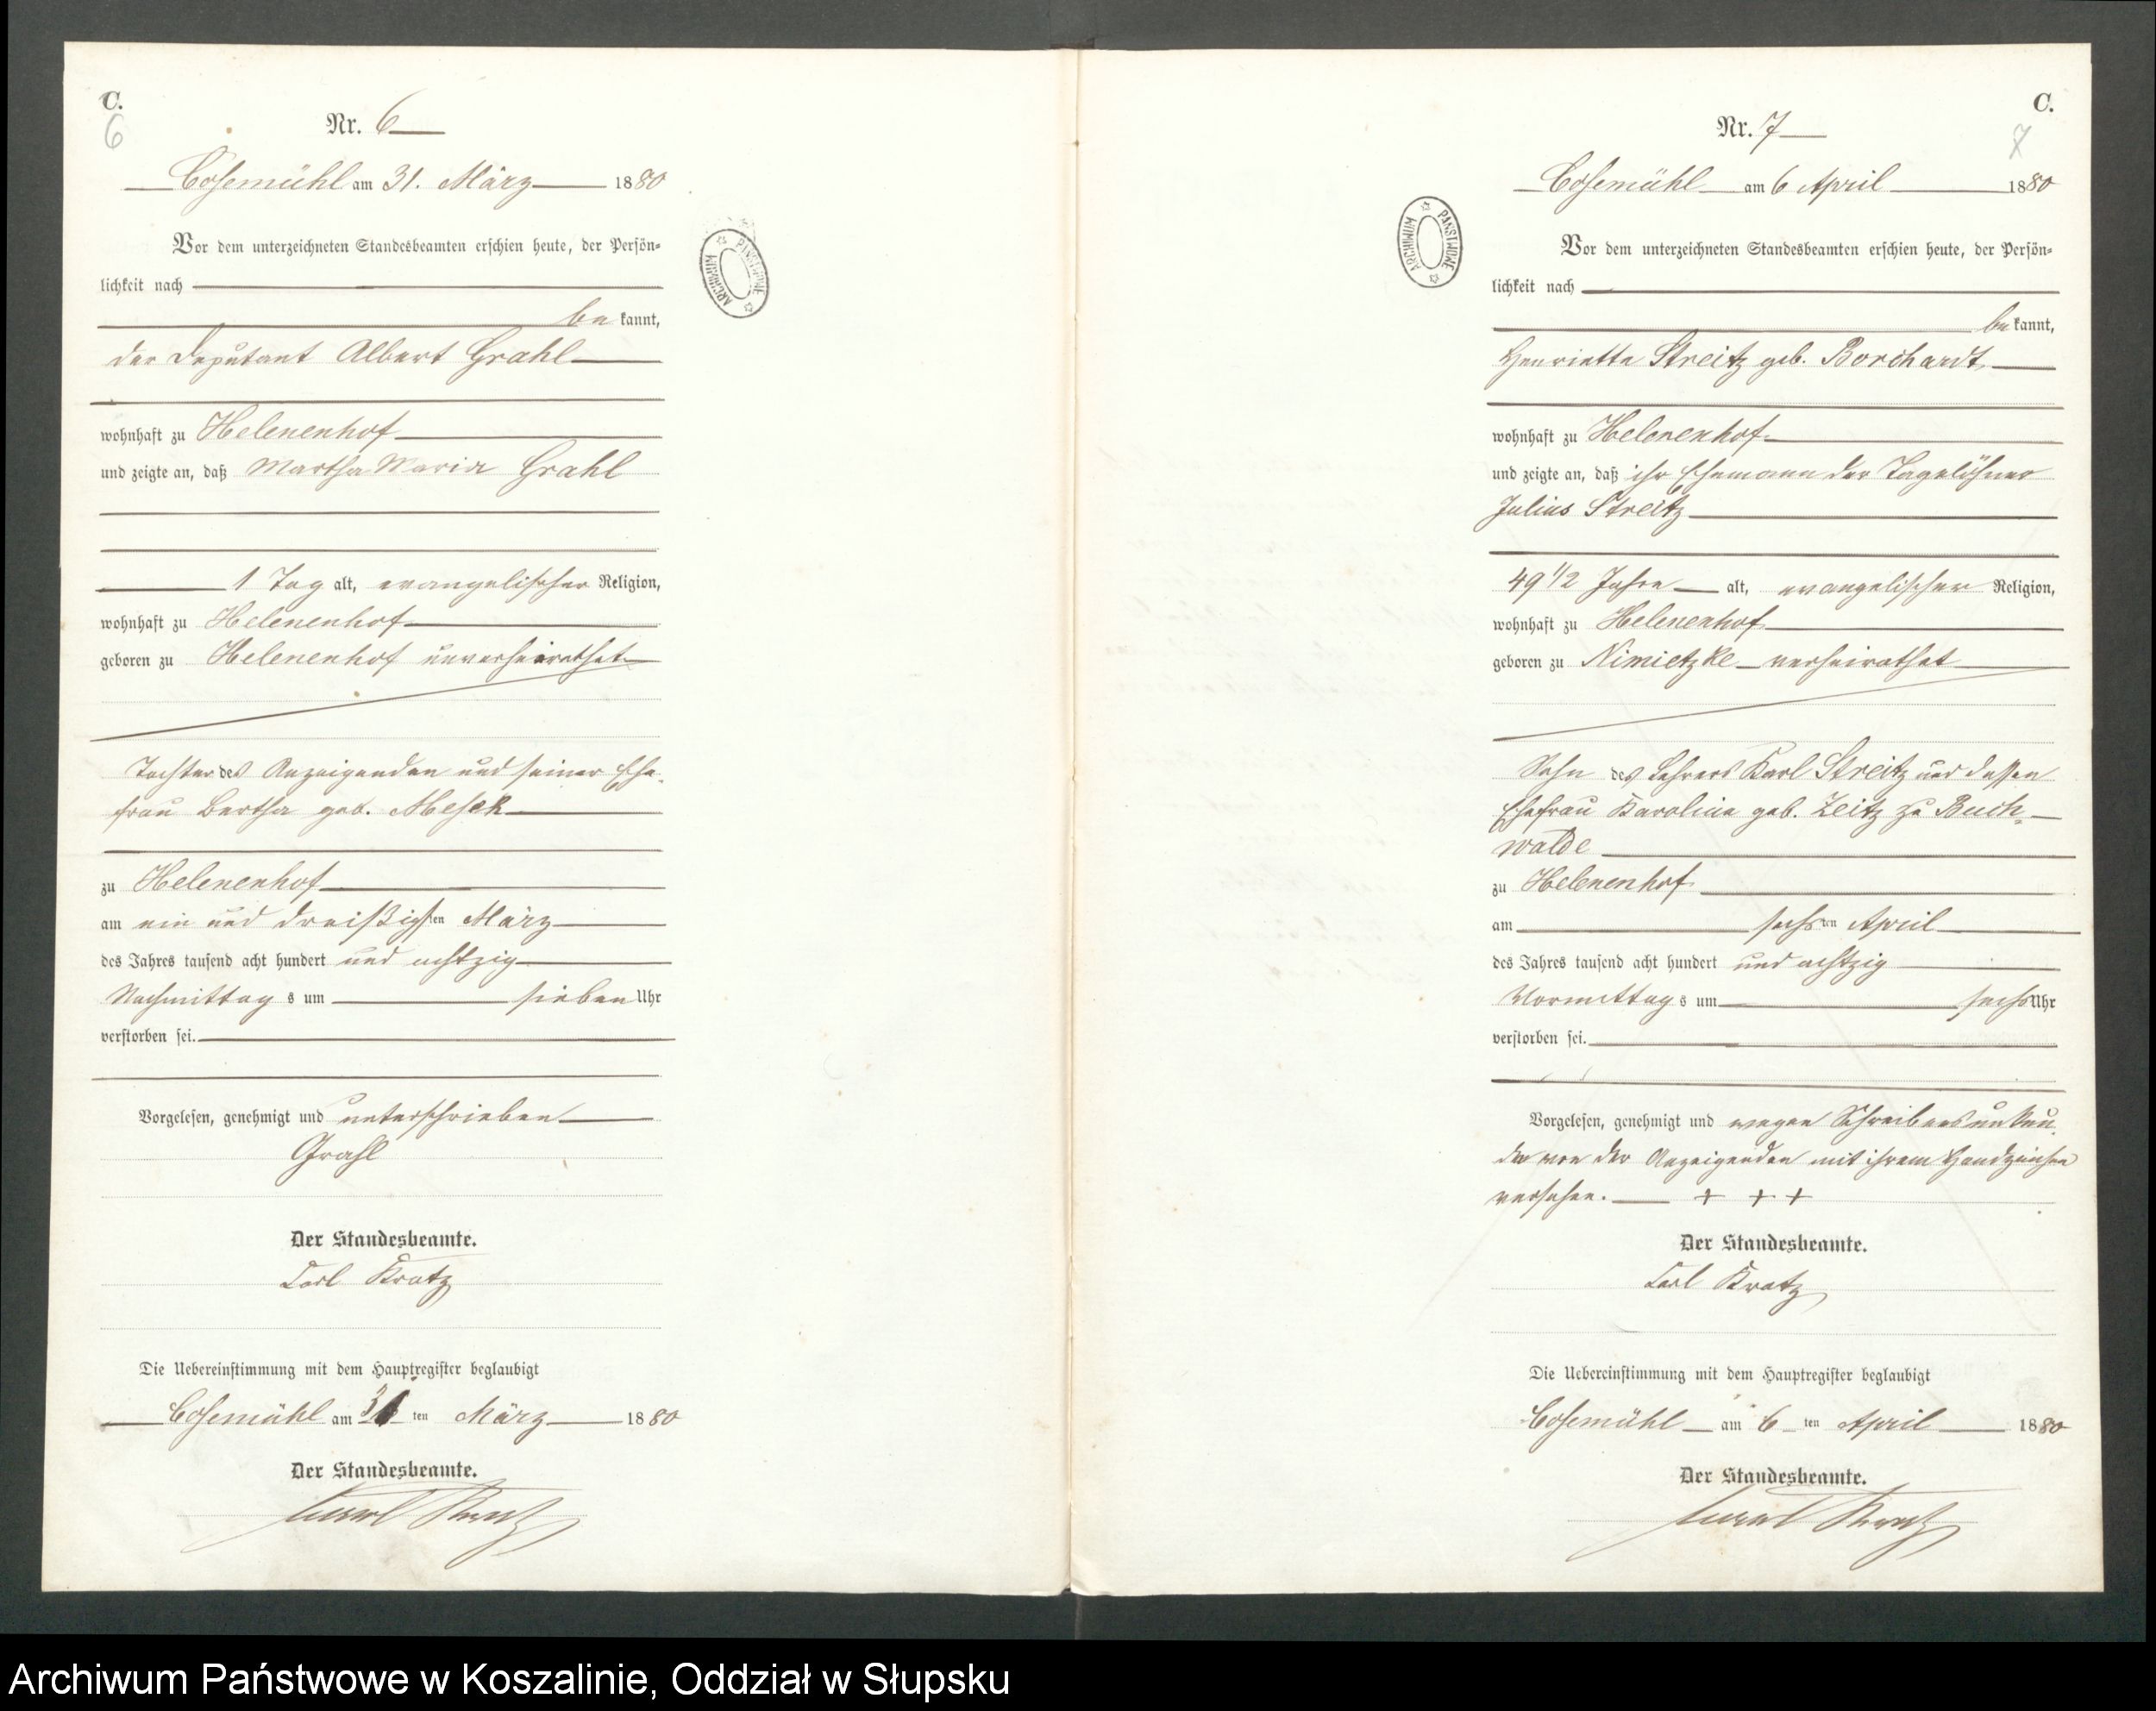 C.
6
Nr. 6
Cosemühl am 31. März 1880
Vor dem unterzeichneten Standesbeamten erschien heute, der Persön-
lichkeit nach
be kannt,
der Deputant Albert Grahl
wohnhaft zu Helenenhof
und zeigte an, daß Martha Maria Grahl
1 Tag alt, evangelischer Religion,
wohnhaft zu Helenenhof
geboren zu Helenenhof unverheirathet
Tochter des Anzeigenden und seiner Ehe-
frau Bertha geb. Mesek
zu Helenenhof
am ein und dreißigsten März
des Jahres tausend acht hundert und achtzig
Nachmittag s um sieben Uhr
verstorben sei.
Vorgelesen, genehmigt und unterschrieben
Grahl
Der Standesbeamte.
Carl Kratz
Die Uebereinstimmung mit dem Hauptregister beglaubigt
Cosemühl am 31 ten März 1880
Der Standesbeamte.
Carl Kratz
ARCHIWUM PAŃSTWOWE
C.
7
Nr. 7
Cosemühl am 6 April 1880
Vor dem unterzeichneten Standesbeamten erschien heute, der Persön-
lichkeit nach
be kannt,
Henriette Streitz geb. Borchardt
wohnhaft zu Helenenhof
und zeigte an, daß ihr Ehemann der Tagelöhner
Julius Streitz
49 1/2 Jahre alt, evangelischer Religion,
wohnhaft zu Helenenhof
geboren zu Nimietzke verheirathet
Sohn des Lehrers Karl Streitz und dessen
Ehefrau Karoline geb. Zeitz zu Buch-
walde
zu Helenenhof
am sechsten April
des Jahres tausend acht hundert und achtzig
Vormittag s um sechs Uhr
verstorben sei.
Vorgelesen, genehmigt und wegen Schreibensunkun-
de von der Anzeigenden mit ihrem Handzeichen
versehen. + + +
Der Standesbeamte.
Carl Kratz
Die Uebereinstimmung mit dem Hauptregister beglaubigt
Cosemühl am 6 ten April 1880
Der Standesbeamte.
Carl Kratz
ARCHIWUM PAŃSTWOWE
Archiwum Państwowe w Koszalinie, Oddział w Słupsku